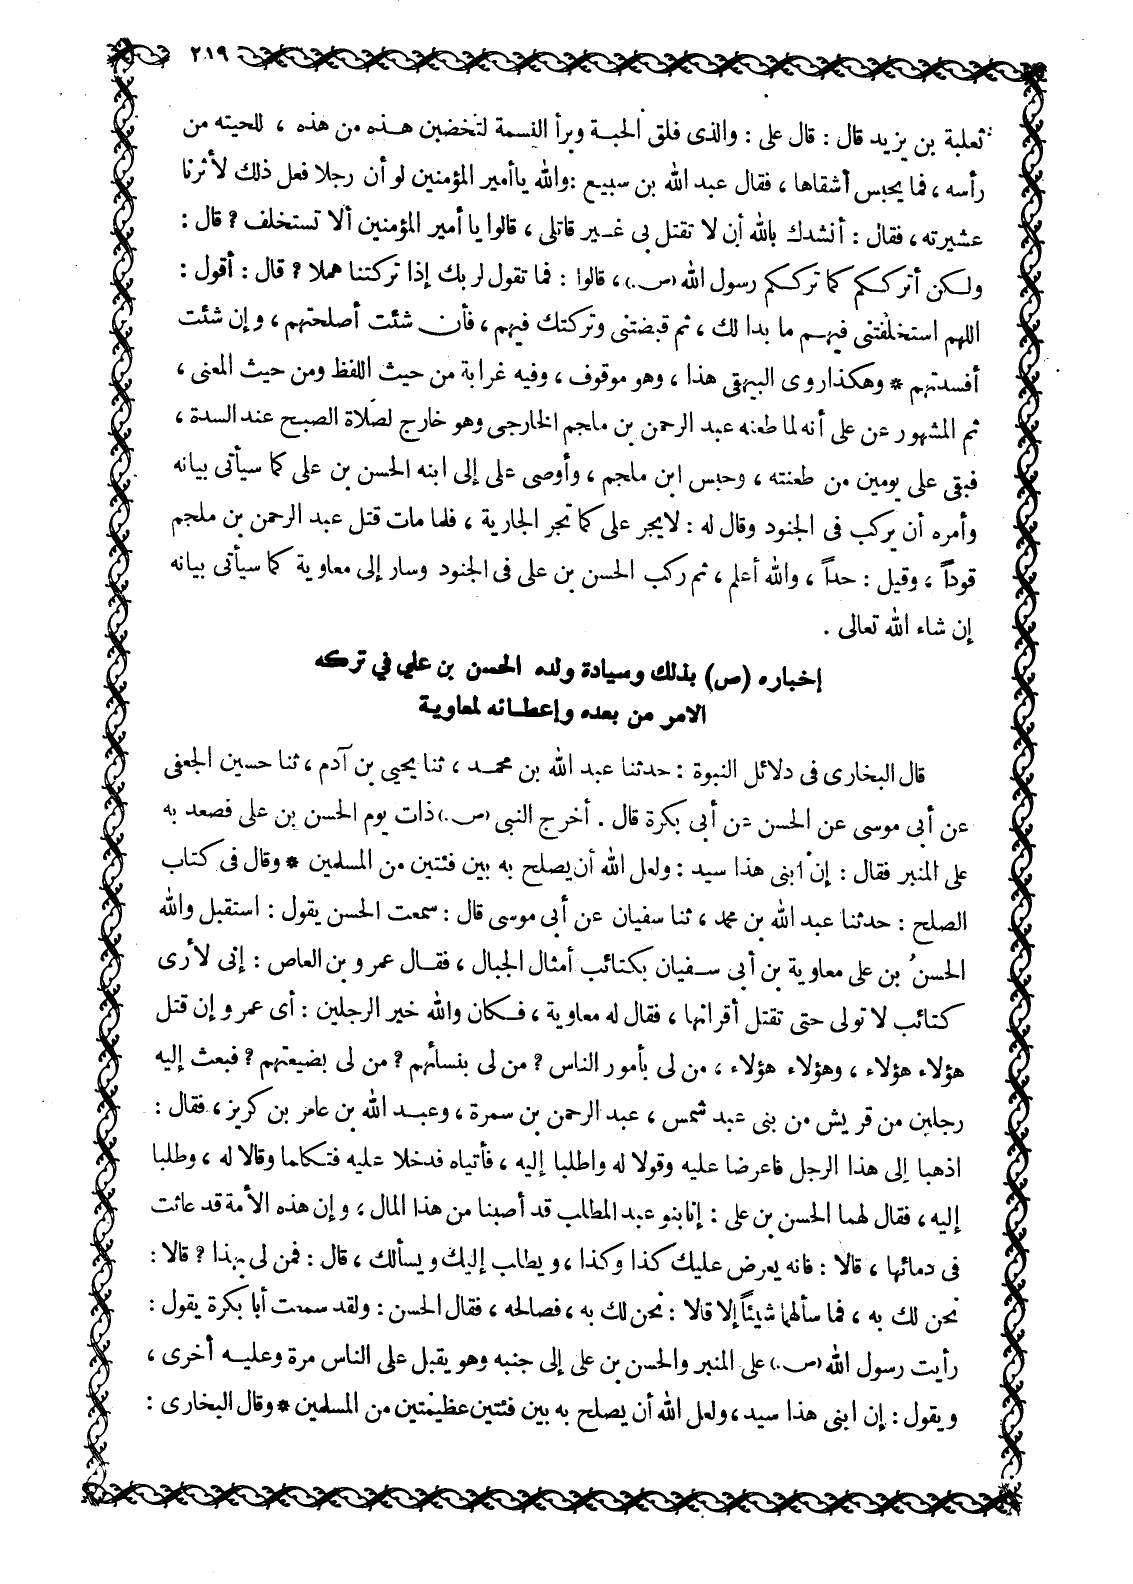 ٢١٩
ثعلبة بن يزيد قال : قال على : والذى فلق الحبة وبرأ النسمة لتخضبن هذه من هذه ، للحيته من
رأسه ، فما يحبس أشقاها ، فقال عبد الله بن سبيع : والله يا أمير المؤمنين لو أن رجلا فعل ذلك لأثرنا
عشيرته ، فقال : أنشدك بالله أن لا تقتل بى غير قاتلى ، قالوا يا أمير المؤمنين ألا تستخلف ؟ قال :
ولكن أترككم كما ترككم رسول الله (ص.) ، قالوا : فما تقول لربك إذا تركتنا هملا ؟ قال : أقول :
اللهم استخلفتنى فيهم ما بدا لك ، ثم قبضتنى وتركتك فيهم ، فأن شئت أصلحتهم ، وإن شئت
أفسدتهم * وهكذا روى البيهقى هذا ، وهو موقوف ، وفيه غرابة من حيث اللفظ ومن حيث المعنى ،
ثم المشهور عن على أنه لما طعنه عبد الرحمن بن ماجم الخارجى وهو خارج لصلاة الصبح عند السدة ،
فبقى على يومين من طعنته ، وحبس ابن ملجم ، وأوصى على إلى ابنه الحسن بن على كما سيأتى بيانه
وأمره أن يركب فى الجنود وقال له : لا يجر على كما تجر الجارية ، فلما مات قتل عبد الرحمن بن ملجم
قوداً ، وقيل : حداً ، والله أعلم ، ثم ركب الحسن بن على فى الجنود وسار إلى معاوية كما سيأتى بيانه
إن شاء الله تعالى .
إخباره (ص) بذلك وسيادة ولده الحسن بن علي في تركه
الامر من بعده وإعطائه لمعاوية
قال البخارى فى دلائل النبوة : حدثنا عبد الله بن محمد ، ثنا يحيى بن آدم ، ثنا حسين الجعفى
عن أبى موسى عن الحسن عن أبى بكرة قال . أخرج النبى (ص.) ذات يوم الحسن بن على فصعد به
على المنبر فقال : إن ابنى هذا سيد : ولعل الله أن يصلح به بين فئتين من المسلمين * وقال فى كتاب
الصلح : حدثنا عبد الله بن محمد ، ثنا سفيان عن أبى موسى قال : سمعت الحسن يقول : استقبل والله
الحسنُ بن على معاوية بن أبى سفيان بكتائب أمثال الجبال ، فقال عمرو بن العاص : إنى لأرى
كتائب لا تولى حتى تقتل أقرانها ، فقال له معاوية ، فكان والله خير الرجلين : أى عمرو إن قتل
هؤلاء هؤلاء ، وهؤلاء هؤلاء ، من لى بأمور الناس ؟ من لى بنسائهم ؟ من لى بضيعتهم ؟ فبعث إليه
رجلين من قريش من بنى عبد شمس ، عبد الرحمن بن سمرة ، وعبد الله بن عامر بن كريز ، فقال :
اذهبا إلى هذا الرجل فاعرضا عليه وقولا له واطلبا إليه ، فأتياه فدخلا عليه فتكلما وقالا له ، وطلبا
إليه ، فقال لهما الحسن بن على : إنا بنو عبد المطلب قد أصبنا من هذا المال ، وإن هذه الأمة قد عاثت
فى دمائها ، قالا : فانه يعرض عليك كذا وكذا ، ويطلب إليك ويسألك ، قال : فمن لى بهذا ؟ قالا :
نحن لك به ، فما سألهما شيئاً إلا قالا : نحن لك به ، فصالحه ، فقال الحسن : ولقد سمعت أبا بكرة يقول :
رأيت رسول الله (ص.) على المنبر والحسن بن على إلى جنبه وهو يقبل على الناس مرة وعليه أخرى ،
ويقول : إن ابنى هذا سيد ، ولعل الله أن يصلح به بين فئتين عظيمتين من المسلمين * وقال البخارى :